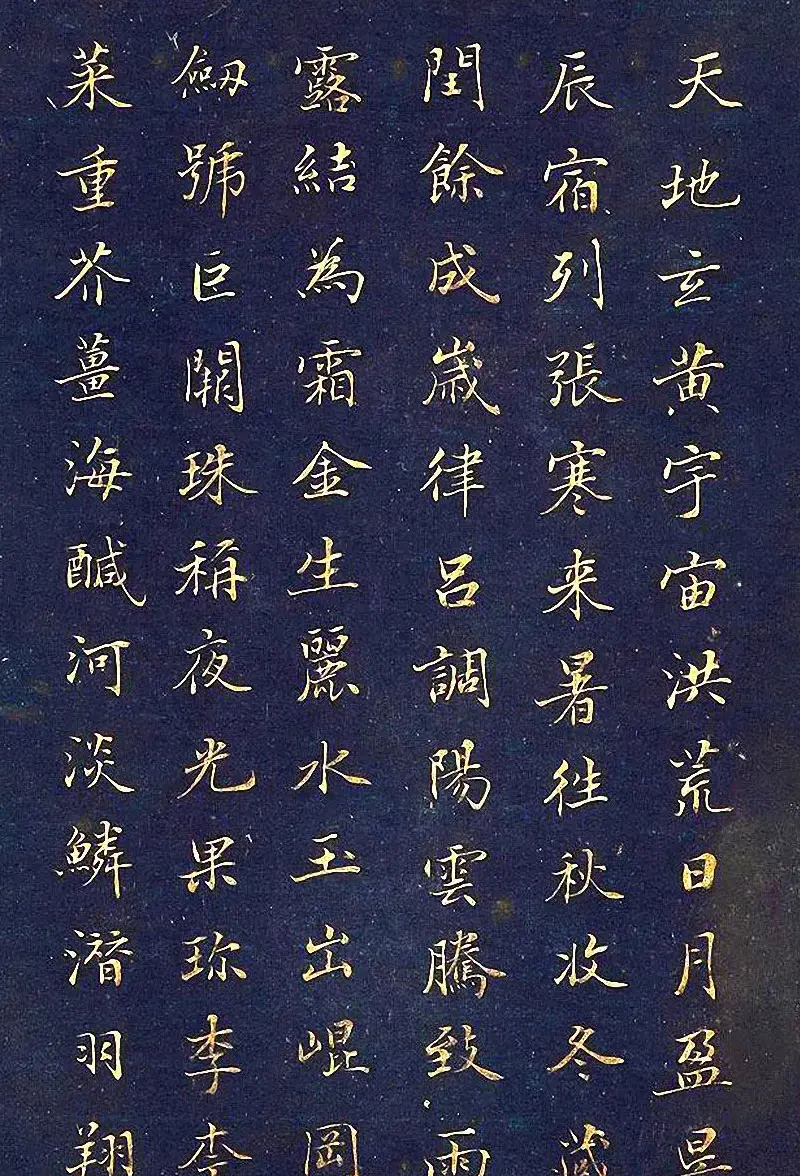 天地玄黄宇宙洪荒日月盈昃
辰宿列張寒来暑徃秋收冬藏
閏餘成歲律呂調陽雲騰致雨
露結為霜金生麗水玉出崐岡
劒號巨闕珠稱夜光果珎李柰
菜重芥薑海醎河淡鱗潛羽翔